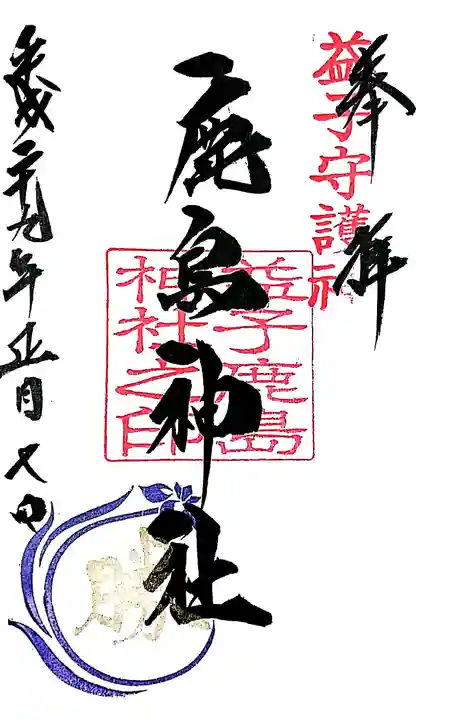 奉拝
益子守護神
鹿島神社
益子鹿島
神社之印
平成二十九年正月七日
勝